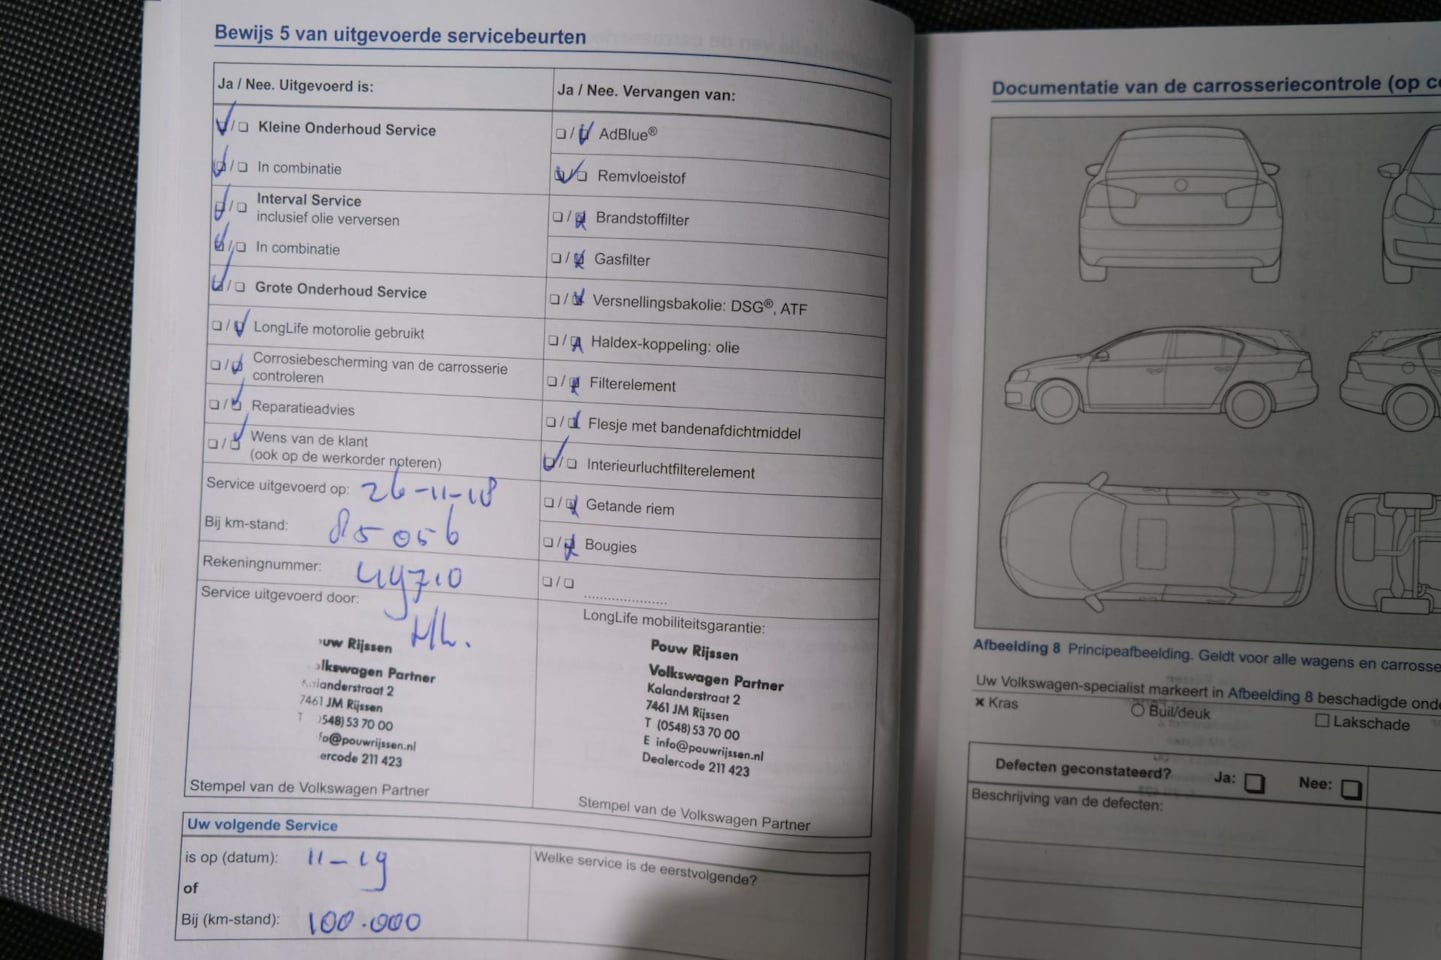 Bewijs 5 van uitgevoerde servicebeurten
Ja / Nee. Uitgevoerd is:
Kleine Onderhoud Service
In combinatie
Interval Service
inclusief olie verversen
In combinatie
Grote Onderhoud Service
LongLife motorolie gebruikt
Corrosiebescherming van de carrosserie
controleren
Reparatieadvies
Wens van de klant
(ook op de werkorder noteren)
Service uitgevoerd op: 26-11-18
Bij km-stand: 85056
Rekeningnummer:
Service uitgevoerd door:
uw Rijssen
lkswagen Partner
landerstraat 2
7461 JM Rijssen
T 548) 53 70 00
fo@pouwrijssen.nl
ercode 211 423
Stempel van de Volkswagen Partner
Ja / Nee. Vervangen van:
AdBlue®
Remvloeistof
Brandstoffilter
Gasfilter
Versnellingsbakolie: DSG®, ATF
Haldex-koppeling: olie
Filterelement
Flesje met bandenafdichtmiddel
Interieurluchtfilterelement
Getande riem
Bougies
LongLife mobiliteitsgarantie:
Pouw Rijssen
Volkswagen Partner
Kalanderstraat 2
7461 JM Rijssen
T (0548) 53 70 00
E info@pouwrijssen.nl
Dealercode 211 423
Stempel van de Volkswagen Partner
Uw volgende Service
is op (datum): 11-19
of
Bij (km-stand): 100.000
Welke service is de eerstvolgende?
Documentatie van de carrosseriecontrole (op
Afbeelding 8 Principeafbeelding. Geldt voor alle wagens en carrosse
Uw Volkswagen-specialist markeert in Afbeelding 8 beschadigde onde
x Kras
Buil/deuk
Lakschade
Defecten geconstateerd? Ja: Nee:
Beschrijving van de defecten: